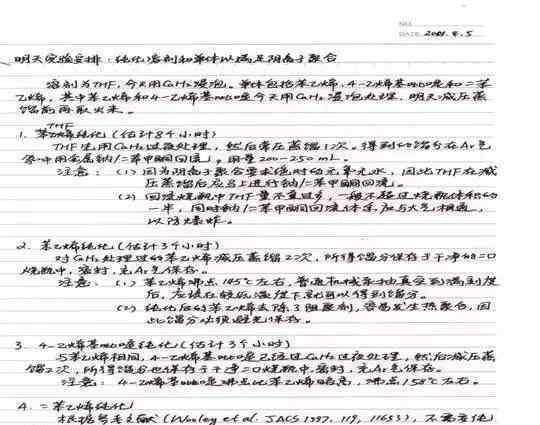 NO.
DATE 2021. 4. 5
明天实验安排：纯化溶剂和单体以满足阴离子聚合
溶剂为THF，今天用CaH₂浸泡。单体包括苯乙烯、4-乙烯基吡啶和二苯
乙烯，其中苯乙烯和4-乙烯基吡啶今天用CaH₂浸泡处理，明天减压蒸
馏前再取出来。
THF
1. 纯化（估计8个小时）
THF先用CaH₂过夜处理，然后常压蒸馏1次。得到的馏分在Ar气
氛中用金属钠/二苯甲酮回流，用量200-250 mL。
注意：（1）因为阴离子聚合要求绝对的无氧无水，因此THF在减
压蒸馏后应马上进行钠/二苯甲酮回流。
（2）回流烧瓶中THF量不宜过多，一般不超过烧瓶体积的
一半，同时钠/二苯甲酮回流体系应与大气相通，
以防爆炸。
2. 苯乙烯纯化（估计3个小时）
对CaH₂处理过的苯乙烯减压蒸馏2次，所得馏分保存于干净的二口
烧瓶中，密封，充Ar气保存。
注意：（1）苯乙烯沸点145℃左右，普通机械泵抽真空到满刻度
后，应该在较低温度下就可以得到馏分。
（2）纯化后的苯乙烯去除了阻聚剂，容易发生热聚合，因
此馏分必须避光保存。
3. 4-乙烯基吡啶纯化（估计3个小时）
与苯乙烯相同，4-乙烯基吡啶已经过CaH₂过夜处理，然后减压蒸
馏2次，所得馏分也保存于干净二口烧瓶中，密封，充Ar气保存。
注意：4-乙烯基吡啶沸点比苯乙烯略高，沸点158℃左右。
4. 二苯乙烯纯化
根据参考文献（Wooley et al. JACS 1997, 119, 11653），不需要纯